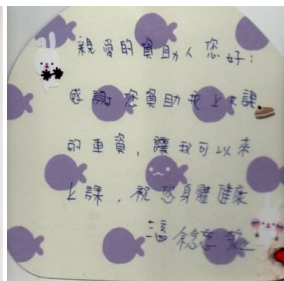 親愛的資助人您好:
感謝您資助我上下課
的車資，讓我可以來
上課，祝您身體健康